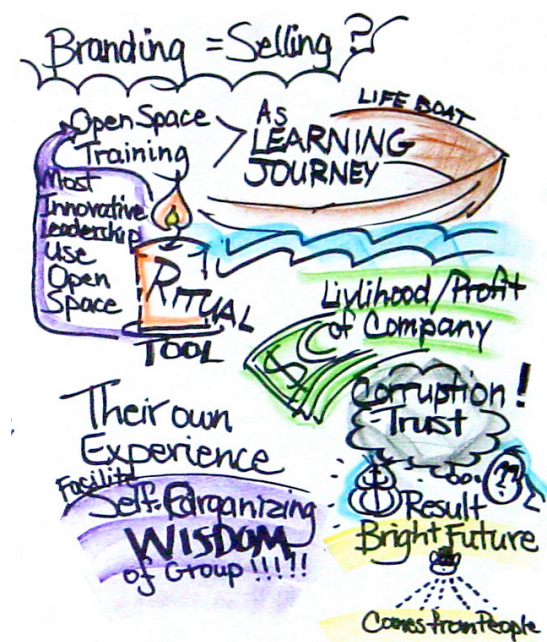 Branding = Selling?
Open Space
Training
>
As
LEARNING
JOURNEY
LIFE BOAT
Most
Innovative
Leadership
Use
Open
Space
RITUAL
TOOL
Livlihood/Profit
of Company
$
Corruption!
Trust
Their own
Experience
Facilite
Self-Eorganizing
WISDOM
of Group!!!!!
??
Result
Bright Future
Comes from People